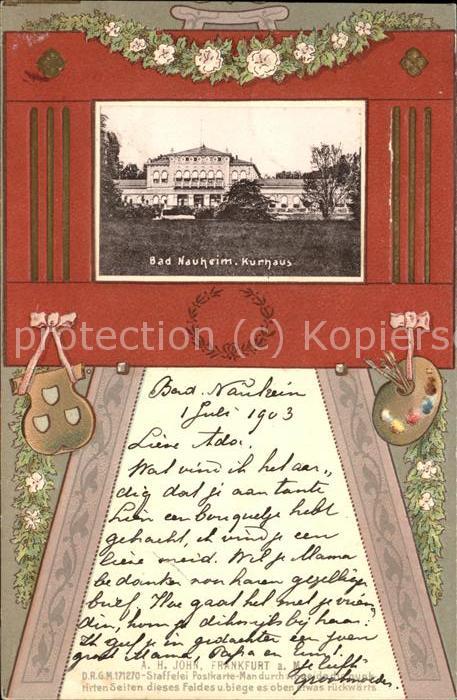 Bad Nauheim. Kurhaus
protection Kopiers
Bad. Nauheim
1 Juli 1903
Lieve Ada.
Wat vind ik het aar„
dig dat je aan tante
Lien een bouquetje hebt
gebracht, ik vind je een
lieve meid. Wil je Mama
bedanken voor haren gezellige
brief. Hoe gaat het met je vrien
din, kom je dikwijls bij haar?
Ik geef je in gedachte een zoen
groet Mama, Papa en
je liefh.
grootmoeder.
A. H. JOHN, FRANKFURT a. M.
D.R.G.M. 171270-Staffelei Postkarte-Man durch
tirten Seiten dieses Feldes u. biege es oben etwas rückwärts.